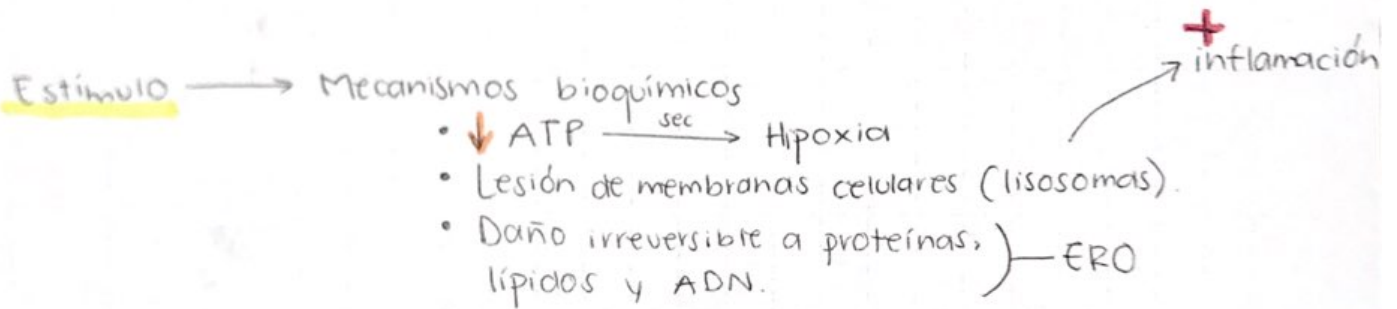 +
inflamación
Estímulo → Mecanismos bioquímicos
• ↓ ATP sec → Hipoxia
• Lesión de membranas celulares (lisosomas).
• Daño irreversible a proteínas,
lípidos y ADN. } — ERO